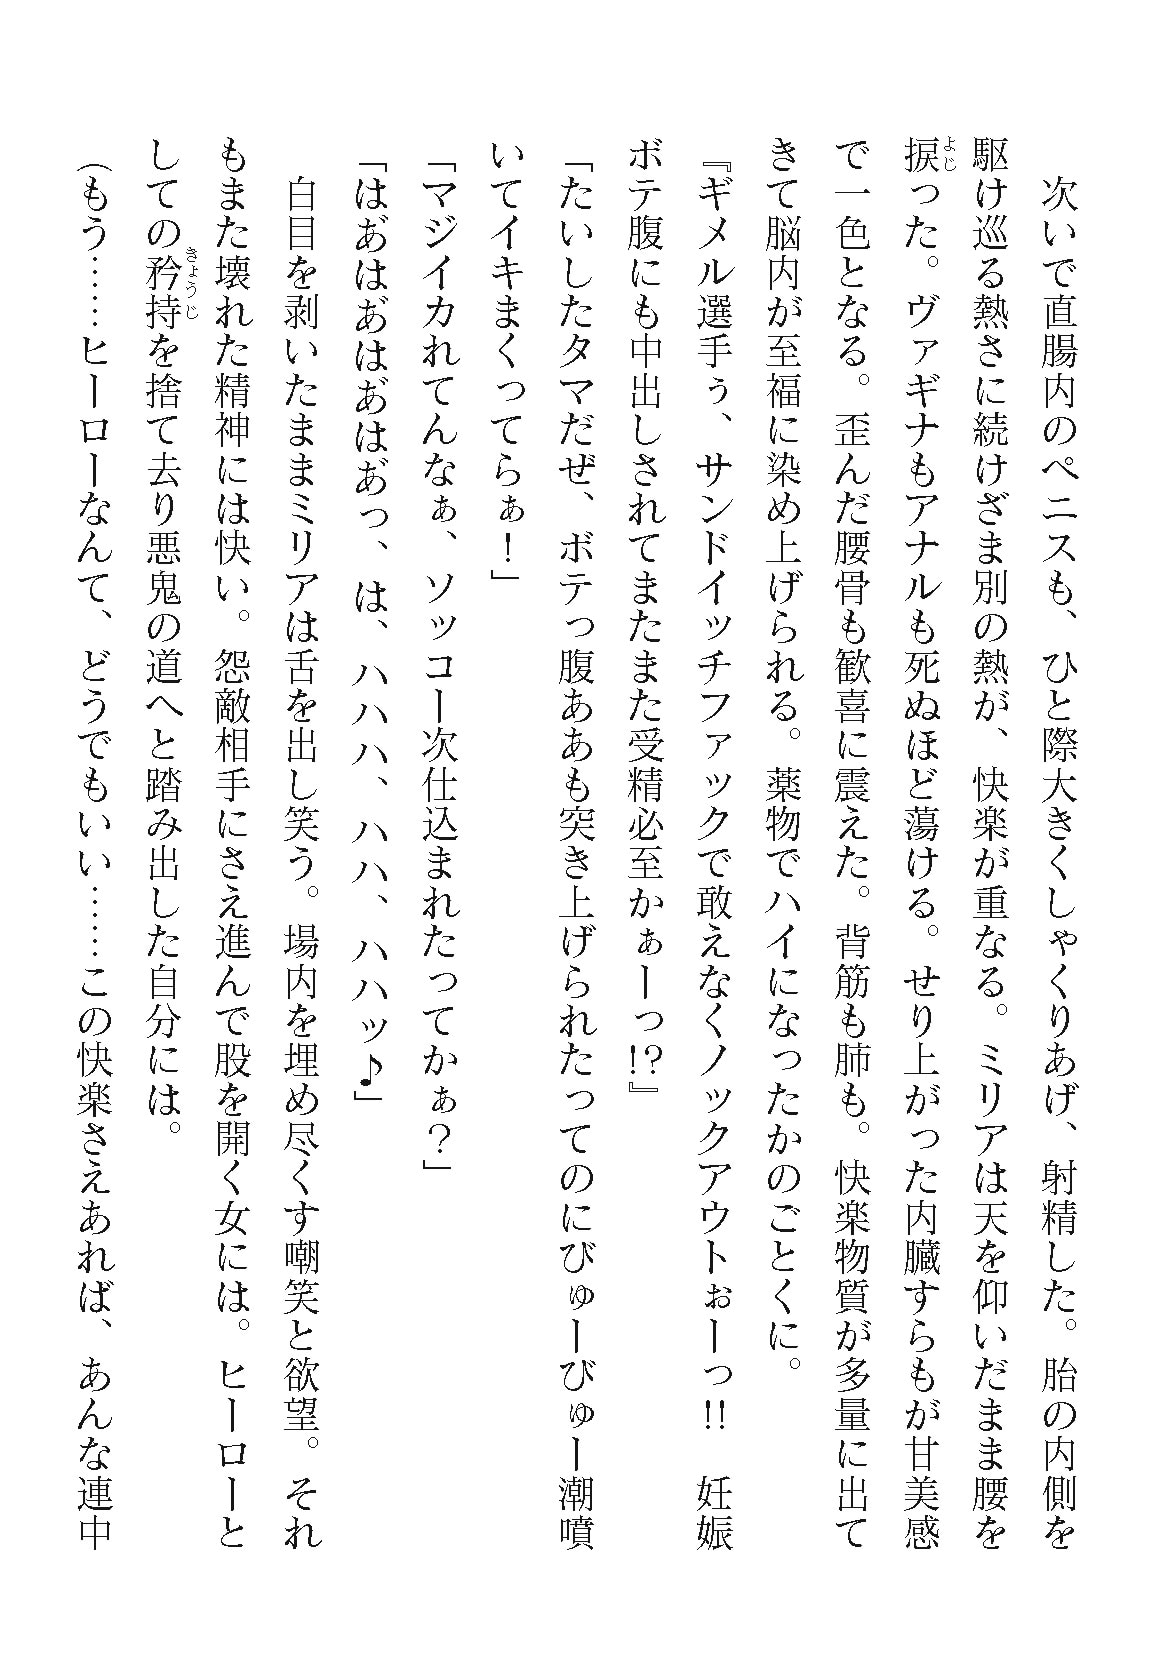 次いで直腸内のペニスも、ひと際大きくしゃくりあげ、射精した。胎の内側を
駆け巡る熱さに続けざま別の熱が、快楽が重なる。ミリアは天を仰いだまま腰を
捩った。ヴァギナもアナルも死ぬほど蕩ける。せり上がった内臓すらもが甘美感
で一色となる。歪んだ腰骨も歓喜に震えた。背筋も肺も。快楽物質が多量に出て
きて脳内が至福に染め上げられる。薬物でハイになったかのごとくに。
『ギメル選手ぅ、サンドイッチファックで敢えなくノックアウトぉーっ!!　妊娠
ボテ腹にも中出しされてまたまた受精必至かぁーっ!?』
「たいしたタマだぜ、ボテっ腹ああも突き上げられたってのにびゅーびゅー潮噴
いてイキまくってらぁ！」
「マジイカれてんなぁ、ソッコー次仕込まれたってかぁ？」
「はあ゙はあ゙はあ゙はあ゙っ、は、ハハハ、ハハ、ハハッ♪」
白目を剥いたままミリアは舌を出し笑う。場内を埋め尽くす嘲笑と欲望。それ
もまた壊れた精神には快い。怨敵相手にさえ進んで股を開く女には。ヒーローと
しての矜持を捨て去り悪鬼の道へと踏み出した自分には。
（もう……ヒーローなんて、どうでもいい……この快楽さえあれば、あんな連中
よじ
きょうじ